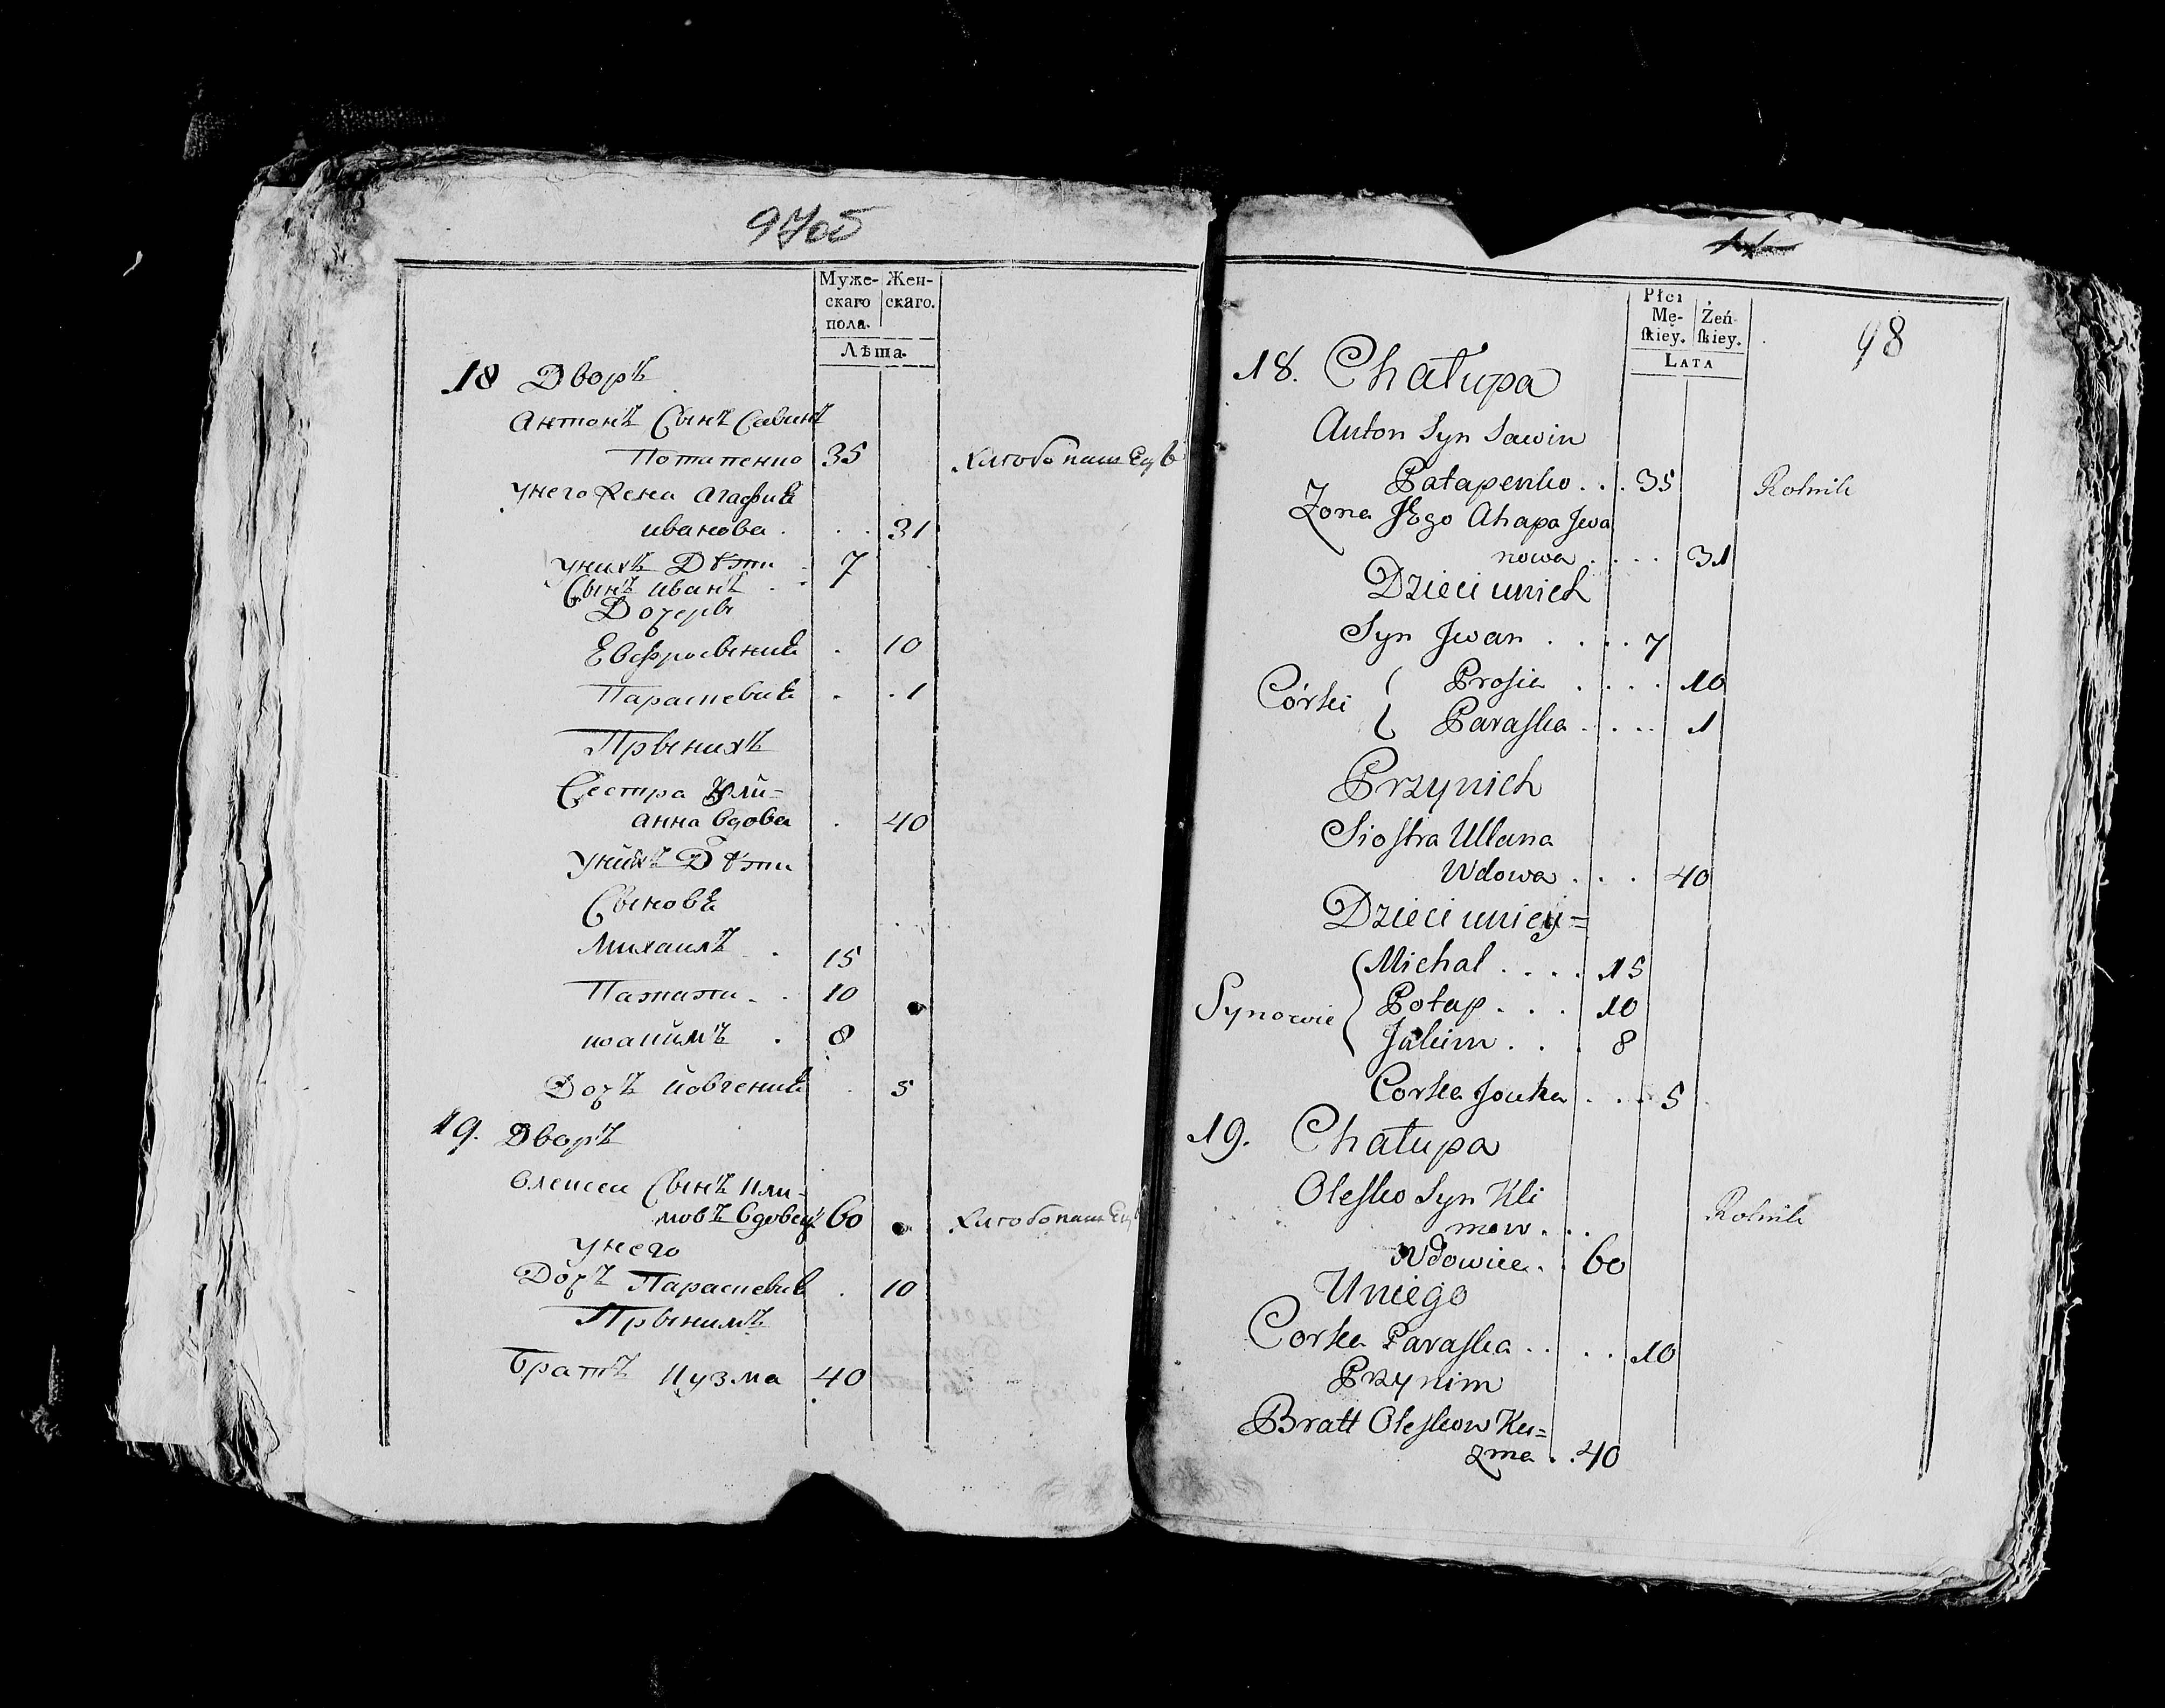 97об
Муже- Жен-
скаго скаго.
пола.
Лѣта.
18 Дворъ
Антонъ Сынъ Савинъ
Потапенко 35 Хлебопашецъ
Унего Жена Агафия
иванова . . . 31
Унихъ Дѣти
Сынъ иванъ . . 7
Дочери
Евфросения . 10
Параскевия . . 1
Прынихъ
Сестра Ули-
анна вдова . 40
Унихъ Дѣти
Сыновя
Михаилъ . 15
Патапи . . 10
иоакимъ . 8
Дочъ йовгения . 5
19. Дворъ
Олексеи Сынъ Кли-
мовъ вдовецъ 60 Хлебопашецъ
Унего
Дочъ Параскевия . 10
Прынимъ
Братъ Кузма 40
98
Płci
Mę- Żeń-
ſkiey. ſkiey.
LATA
18. Chałupa
Anton Syn Sawin
Patapenko . . . 35 Rolnik
Zona JEgo Ahapa Jwa
nowa . . . . 31
Dzieci unich
Syn Jwan . . . . 7
Córki { Prosia . . . . 10
Paraska . . . . 1
Przynich
Siostra Ullana
Wdowa . . . 40
Dzieci unieỹ=
Synowie { Michal . . . . 15
Potap . . . 10
Jakim . . . 8
Corka Jouha . . . 5
19. Chałupa
Olesko Syn Kli
mow . . . Rolnik
Wdowiec . . 60
Uniego
Corka Paraska . . . . 10
Przynim
Bratt Oleskow Ku=
zma . . 40